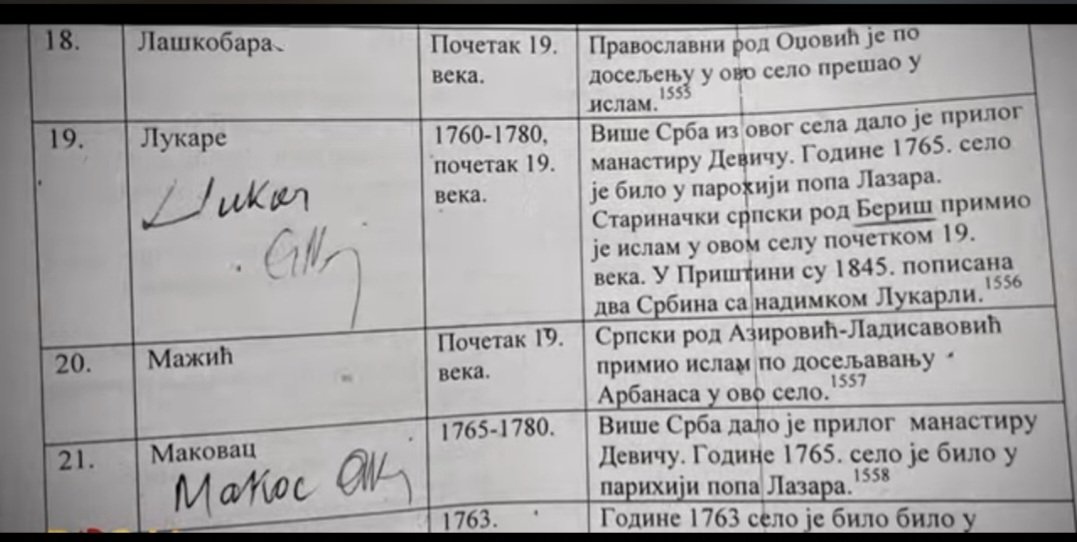 18.
Лашкобара
Почетак 19.
века.
Православни род Оџовић је по
досељењу у ово село прешао у
ислам.1553
19.
Лукаре
1760-1780,
почетак 19.
века.
Више Срба из овог села дало је прилог
манастиру Девичу. Године 1765. село
је било у парохији попа Лазара.
Стариначки српски род Бериш примио
је ислам у овом селу почетком 19.
века. У Приштини су 1845. пописана
два Србина са надимком Лукарли.1556
20.
Мажић
Почетак 19.
века.
Српски род Азировић-Ладисавовић
примио ислам по досељавању
Арбанаса у ово село.1557
21.
Маковац
Makoc
1765-1780.
Више Срба дало је прилог манастиру
Девичу. Године 1765. село је било у
парихији попа Лазара.1558
1763.
Године 1763 село је било било у